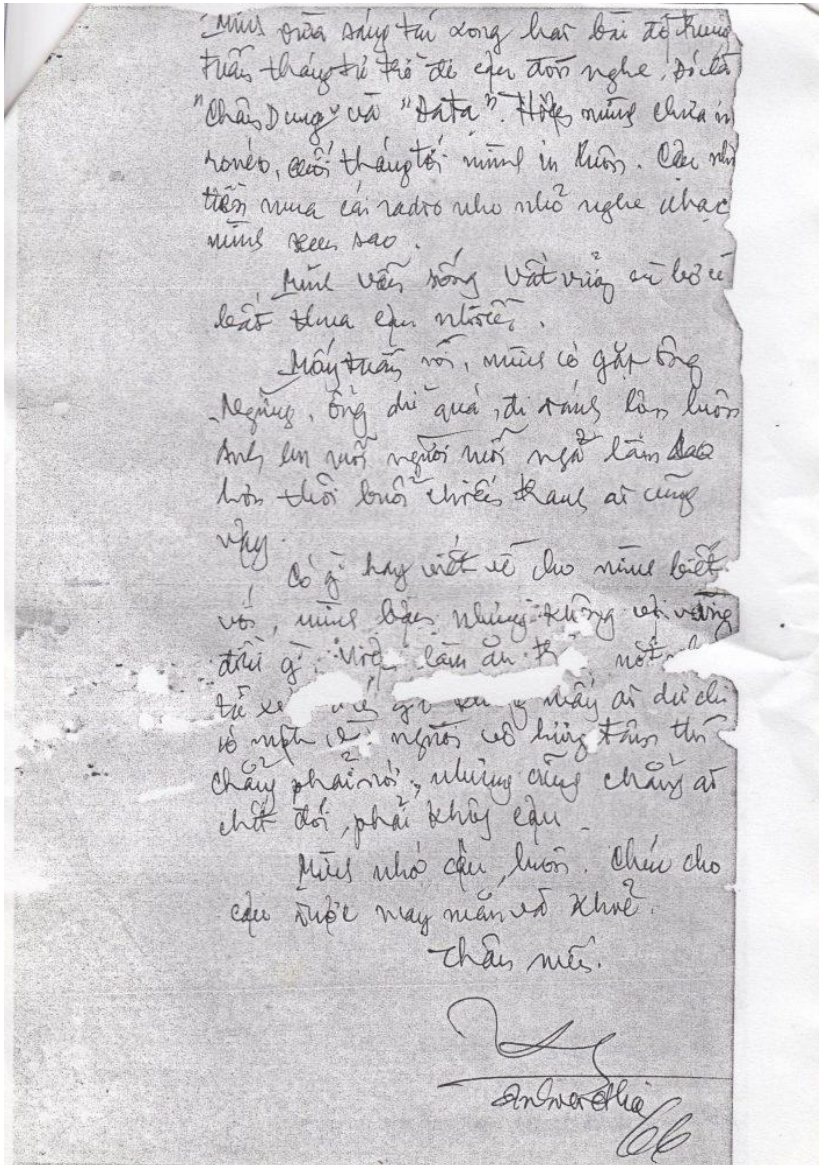 Mình vừa sáng tác xong hai bài để trung
tuần tháng tư trở đi cậu đón nghe. Đó là
"Chân Dung" và "Data". Hiện mình chưa in
ronéo, cuối tháng tới mình in luôn. Cậu nhớ
tiền mua cái radio nho nhỏ nghe nhạc
mình xem sao.
Mình vẫn sống vất vả,
thua cậu nhiều.
Mấy tuần rồi, mình có gặp ông
ông dữ quá, đi luôn
Anh em mỗi người mỗi ngả lắm
hồn thôi buổi chiến tranh ai cũng
vậy.
Có gì hay viết về cho mình biết
với, mình bận nhưng không vội vàng
điều gì. Việc làm ăn
mấy ai
có một người có lương tâm thì
chẳng phải nói, nhưng cũng chẳng ai
chết đói, phải không cậu
Mình nhớ cậu luôn. Chúc cho
cậu được may mắn và khoẻ.
Thân mến.
66